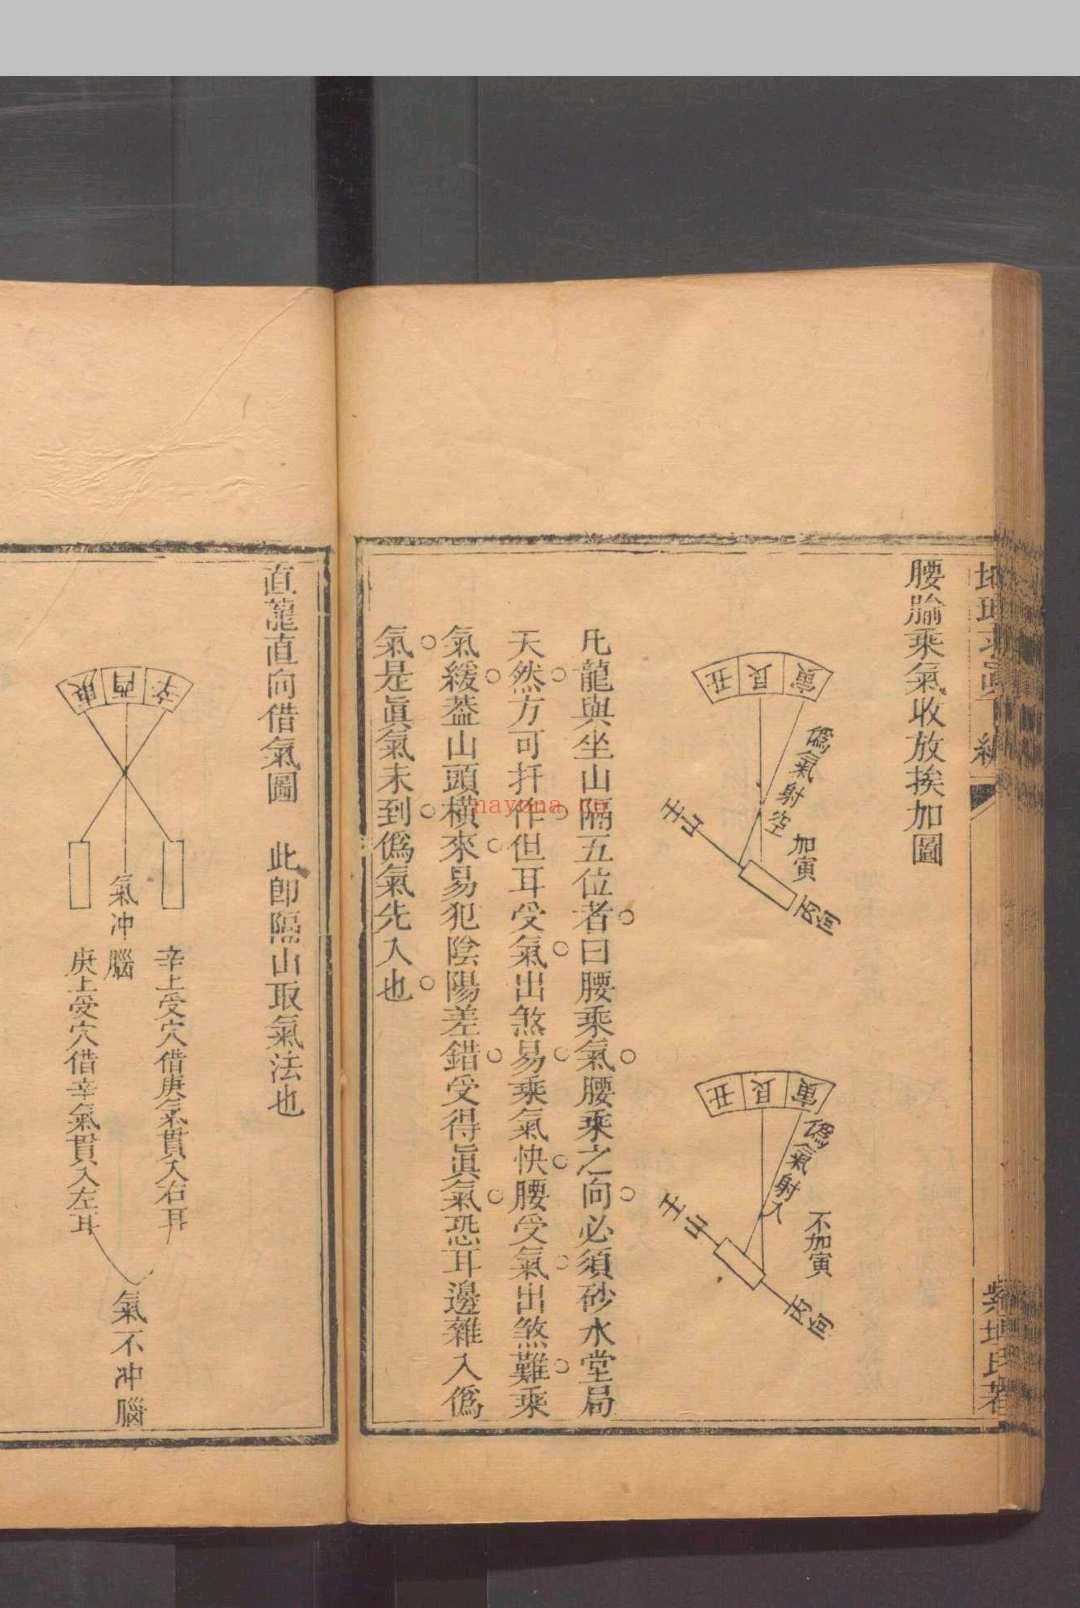 腰腧乘氣收放挨加圖
寅
艮
丑
僞氣射空
加寅
壬山
丙向
寅
艮
丑
僞氣射入
不加寅
壬山
丙向
凡龍與坐山隔五位者曰腰乘氣腰乘之向必須砂水堂局
天然方可扦作但耳受氣出煞易乘氣快腰受氣出煞難乘
氣緩葢山頭橫來易犯陰陽差錯受得眞氣恐耳邊雜入僞
氣是眞氣未到僞氣先入也
直龍直向借氣圖　此卽隔山取氣法也
辛
酉
庚
氣冲腦
辛上受穴借庚氣貫入右耳
庚上受穴借辛氣貫入左耳
氣不冲腦
nayona.cn